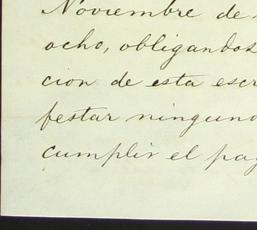 Noviembre de
ocho, obligandos
cion de esta escr
festar ninguno
cumplir el pag